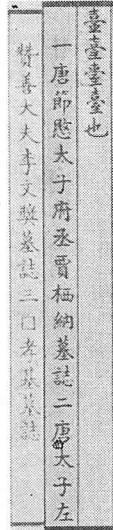 臺臺臺臺也
一唐節愍太子府丞賈栖納墓誌二唐太子左
贊善大夫李文獎墓誌三口孝基墓誌